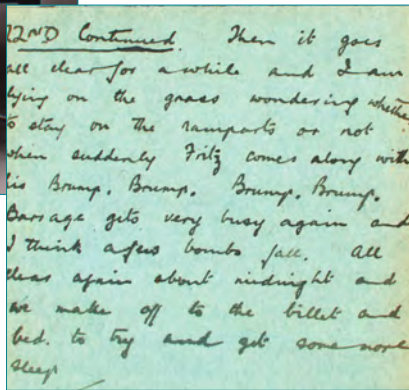 22ND Continued. Then it goes
all clear for a while and I am
lying on the grass wondering whether
to stay on the ramparts or not
when suddenly Fritz comes along with
his Brump, Brump. Brump, Brump.
Barrage gets very busy again and
I think a few bombs fall. All
clear again about midnight and
we make off to the billet and
bed. to try and get some more
sleep